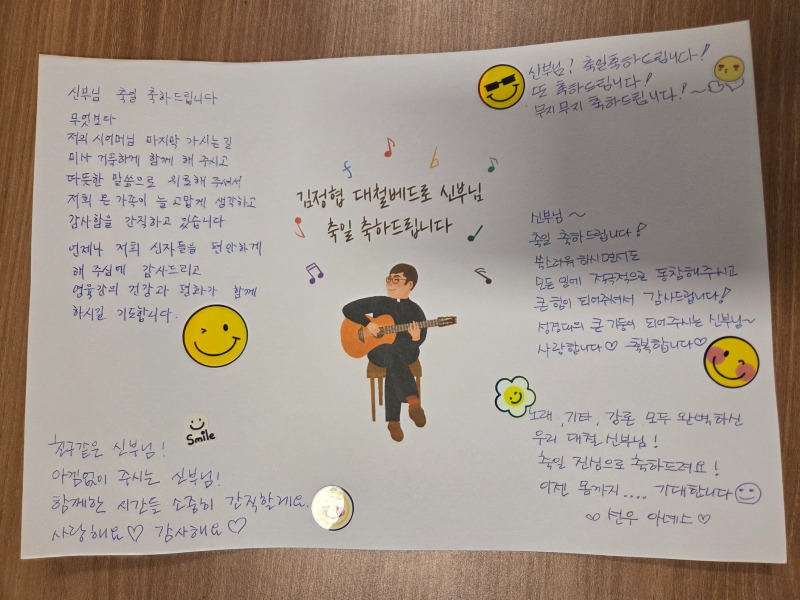 신부님 축일 축하드립니다
무엇보다
저희 시어머님 마지막 가시는 길
미사 거룩하게 함께 해 주시고
따듯한 말씀으로 위로해 주셔서
저희 온 가족이 늘 고맙게 생각하고
감사함을 간직하고 있습니다
언제나 저희 신자들을 편안하게
해 주심에 감사드리고
영육간의 건강과 평화가 함께
하시길 기도합니다.
신부님! 축일축하드립니다!
또 축하드립니다!
무지무지 축하드립니다!~
김정협 대철베드로 신부님
축일 축하드립니다
신부님~
축일 축하드립니다!
쑥스러워하시면서도
모든 일에 적극적으로 동참해주시고
큰 힘이 되어주셔서 감사드립니다!
성경대의 큰 기둥이 되어주시는 신부님~
사랑합니다♡ 축복합니다♡
Smile
친구같은 신부님!
아낌없이 주시는 신부님!
함께한 시간들 소중히 간직할게요.
사랑해요♡ 감사해요♡
노래, 기타, 강론 모두 완벽하신
우리 대철 신부님!
축일 진심으로 축하드려요!
이젠 몸까지.... 기대합니다
선우 아녜스♡